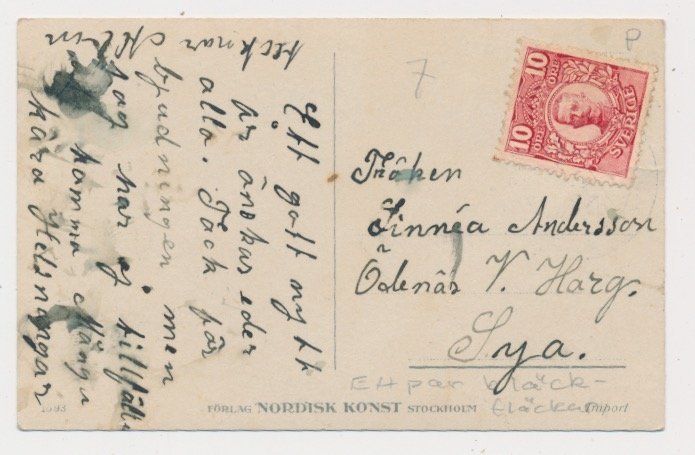 Ett gott nytt
år önskar eder
alla. Tack för
bjudningen men
jag har ej tillfälle
komma Många
kära Hälsningar
tecknar
P
7
10 ÖRE
10 ÖRE
SVERIGE
Fröken
Linnéa Andersson
Ödenäs V. Harg.
Sya.
Ett par bläck-
fläckar
1093
FÖRLAG NORDISK KONST STOCKHOLM
Import